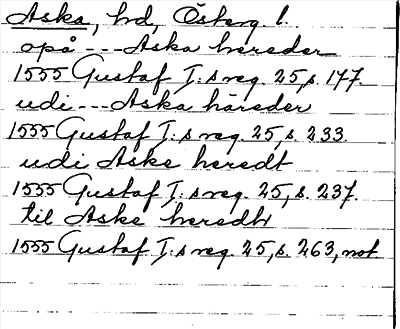 Aska, hd, Österg l.
opå --- Aska hereder
1555 Gustaf I:s reg. 25, s. 177.
udi --- Aska häreder
1555 Gustaf I:s reg. 25, s. 233.
udi Aske heredt
1555 Gustaf I:s reg. 25, s. 237.
til Aske heredtz
1555 Gustaf I:s reg. 25, s. 263, not